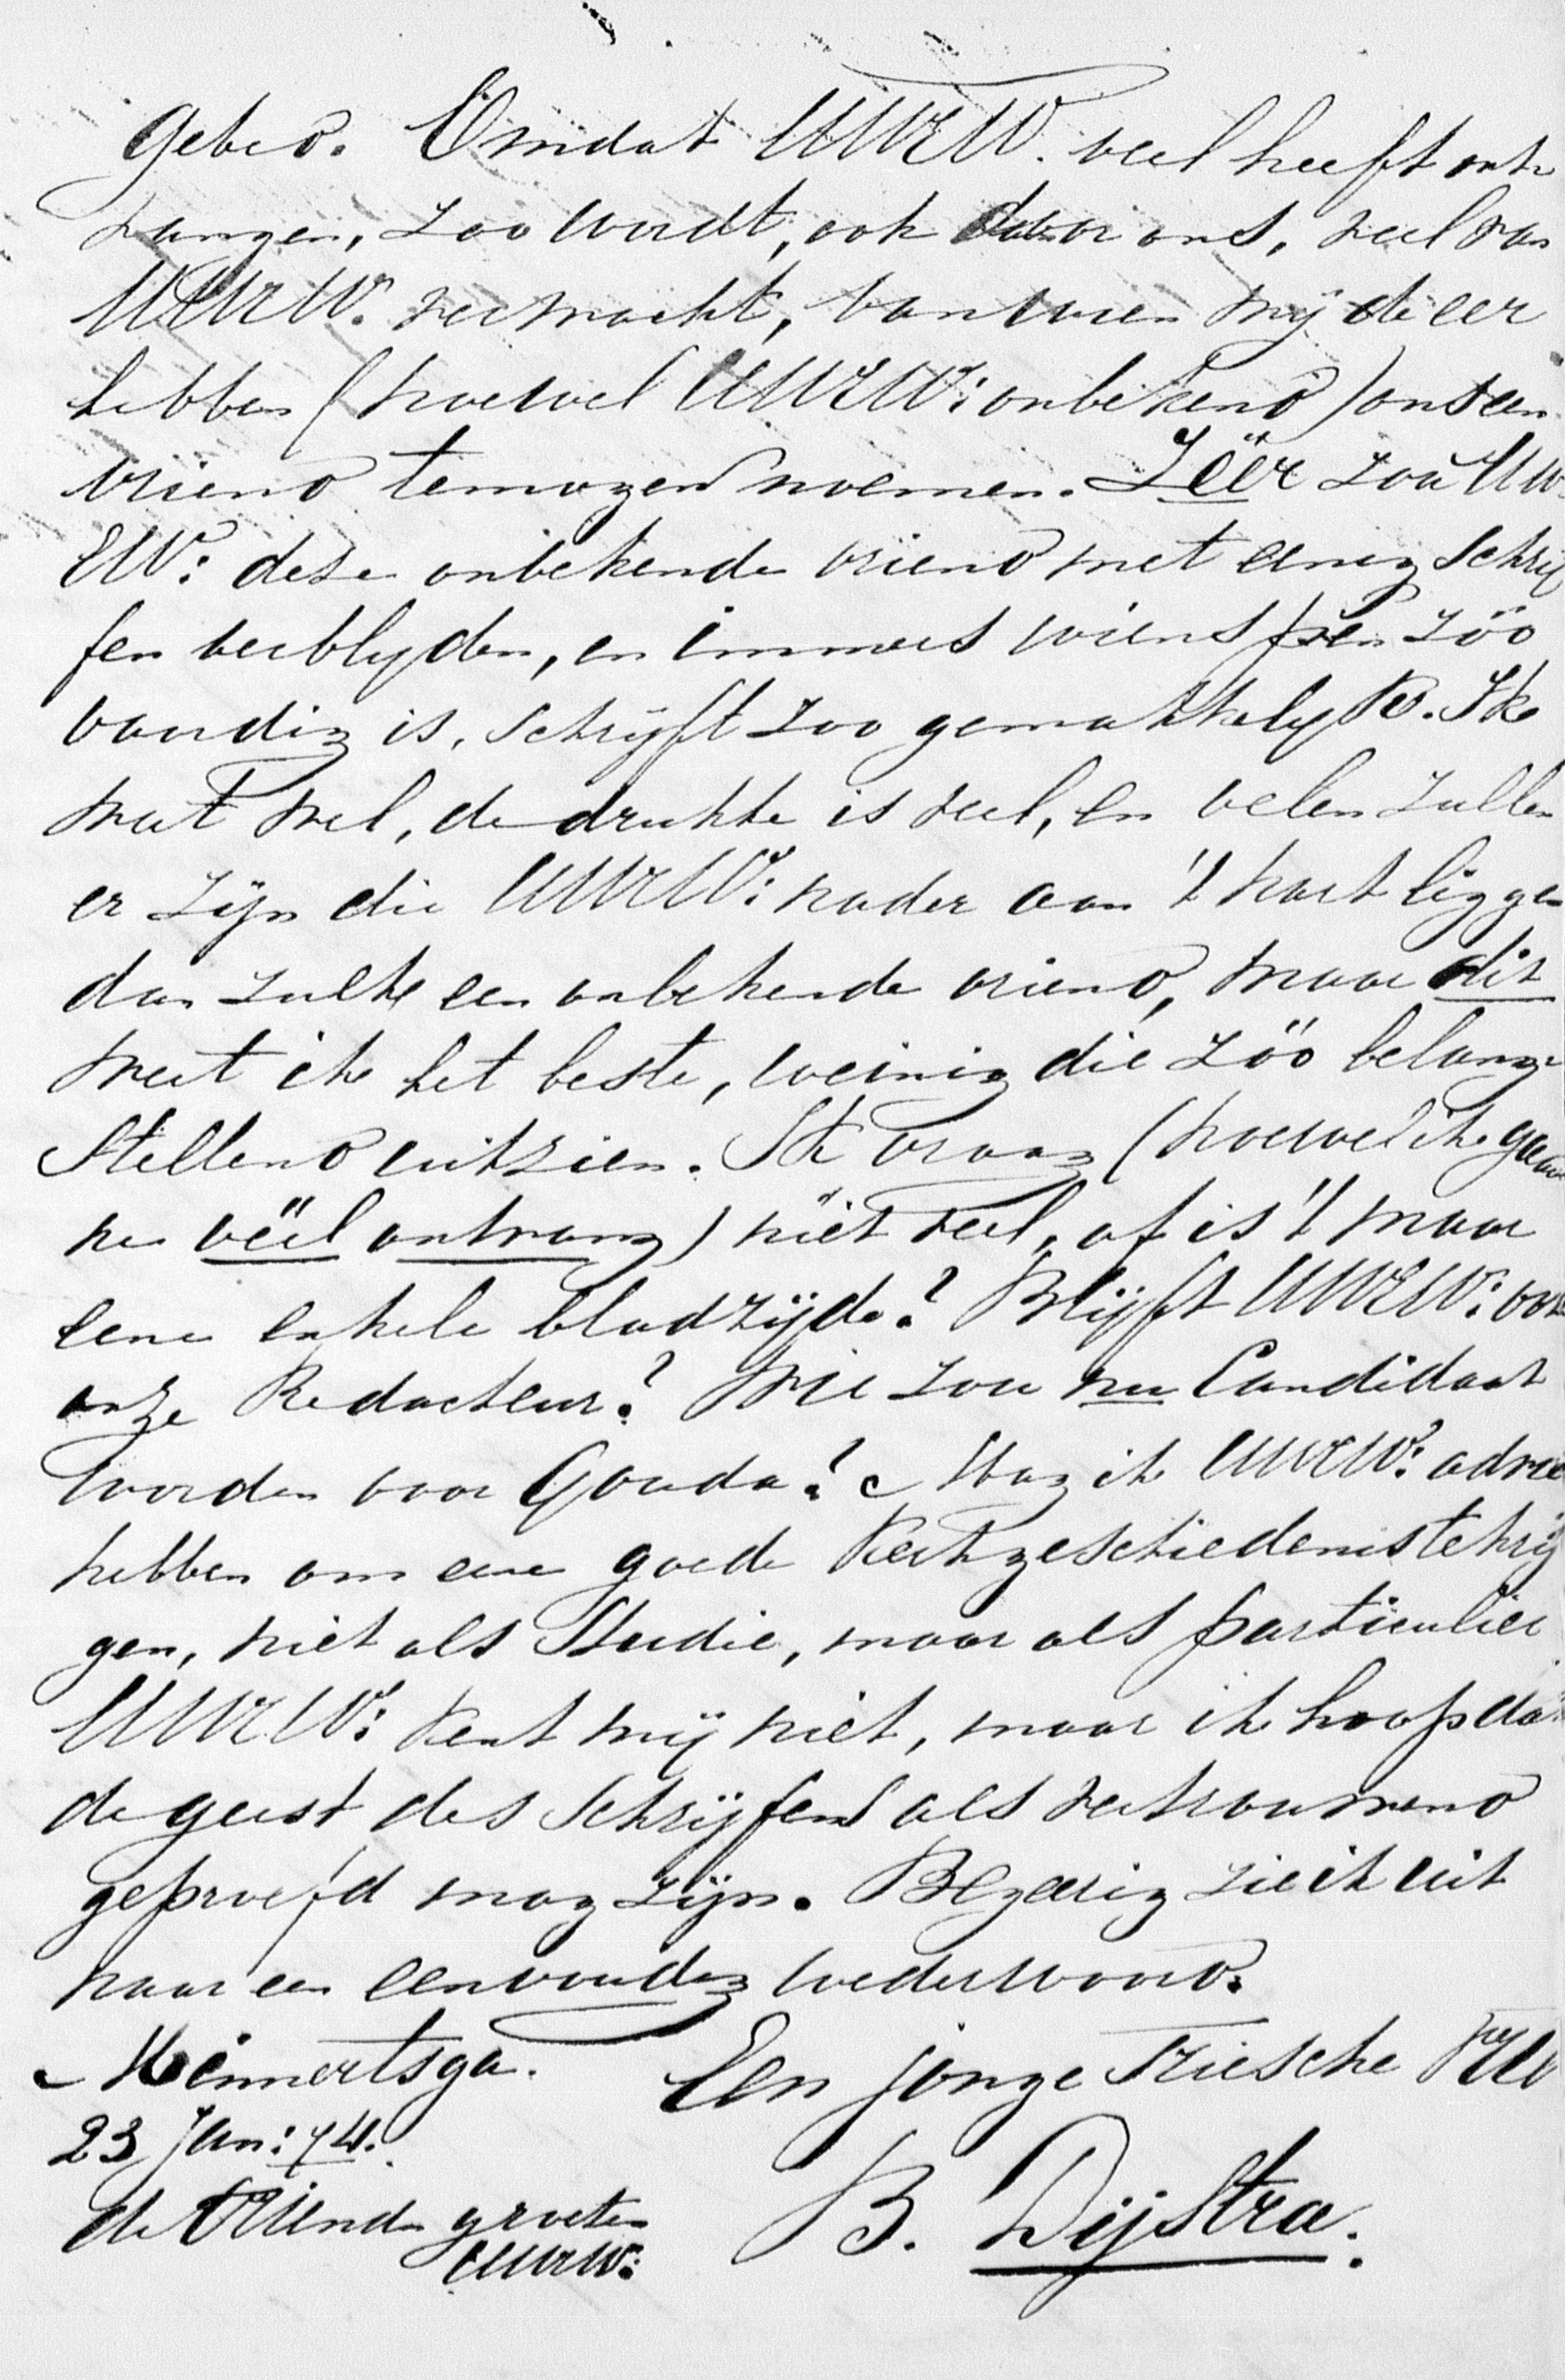 gebed. Omdat UWEW. veel heeft ont
vangen, zoo wordt, ook door ons, veel van
UWEW: verwacht, van wien wij de eer
hebben (hoewel UWEW: onbekend) ons een
vriend te mogen noemen. Zéér zou UW
EW: deze onbekende vriend met eenig schrij
fen verblyden, en immers wiens pen zóó
vaardig is, schrijft zoo gemakkelyk. Ik
weet wel, de drukte is veel, en velen zullen
er zijn die UWEW: nader aan 't hart liggen
dan zulk een onbekende vriend, maar dit
weet ik het beste, weinig die zóó belang
stellend uitzien. Ik vraag (hoewel ik gaar
ne véél ontvang) niet veel, of is 't maar
eene enkele bladzijde? Blijft UWEW: ook
onze Redacteur? Wie zou nu Candidaat
worden voor Gouda? Mag ik UWEW: advies
hebben om eene goede Kerkgeschiedenis te krij
gen, niet als Studie, maar als particulier
UWEW: kent mij niet, maar ik hoop dat
de geest des Schrijfens als vertrouwend
geproefd mag zijn. Begeerig zie ik uit
naar een eenvoudig wederwoord.
Minnertsga. Een jonge Friesche
23 Jan: 74.
de vrienden groeten B. Dijstra.
UWEW: